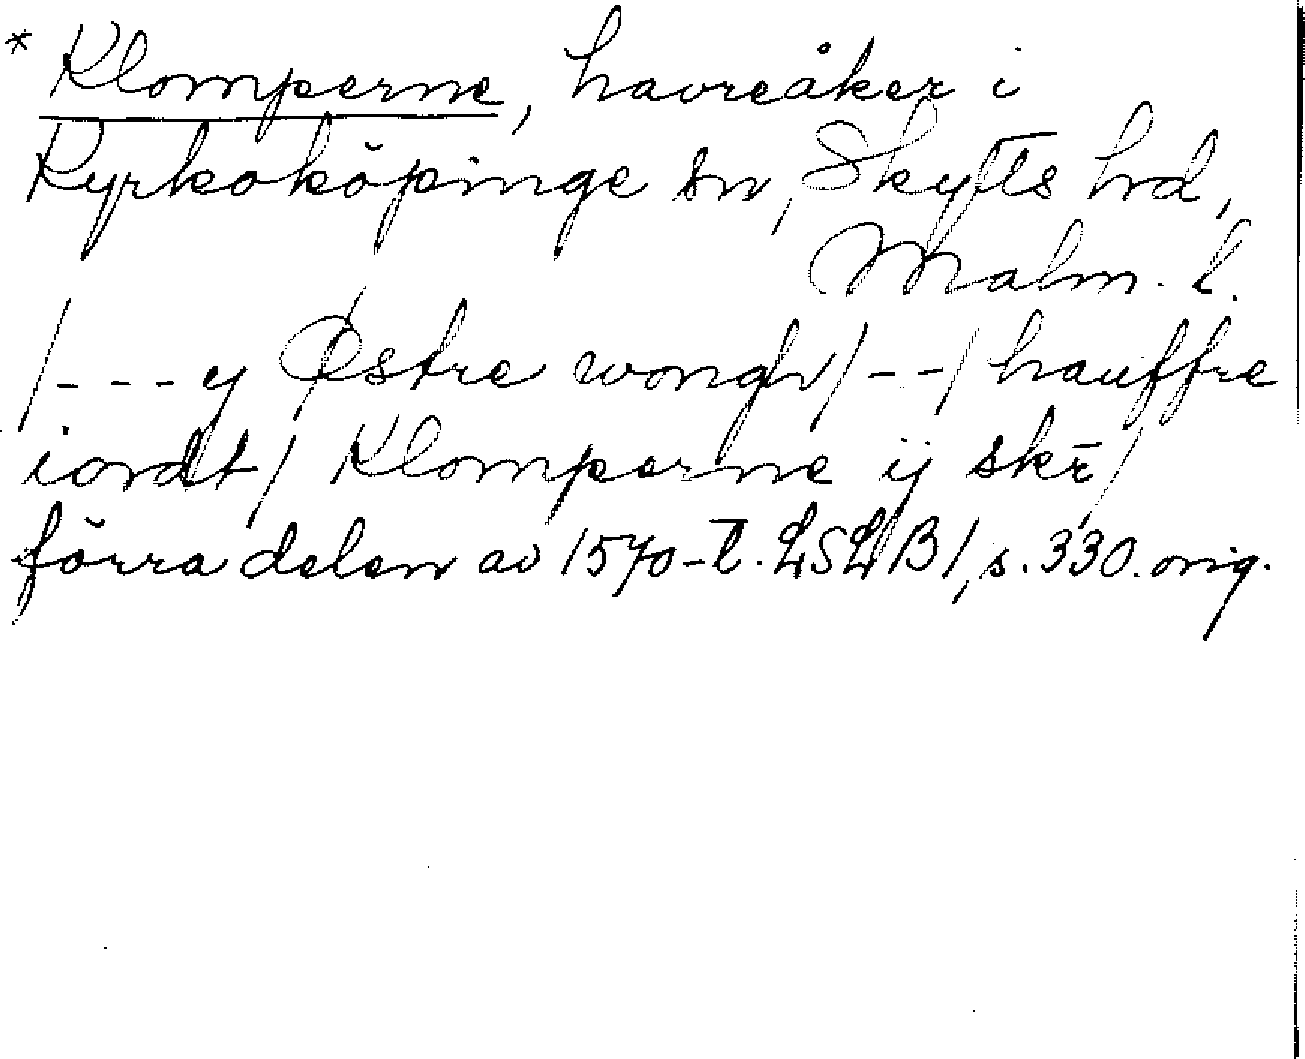 * Klomperne, havreåker i
Kyrkoköpinge sn, Skytts hd,
Malm. l.
/---y Østre wongh/--/ hauffre
iordt/ Klomperne ij skr̄/
förra delen av 1570-t. LSLB1, s. 330. orig.